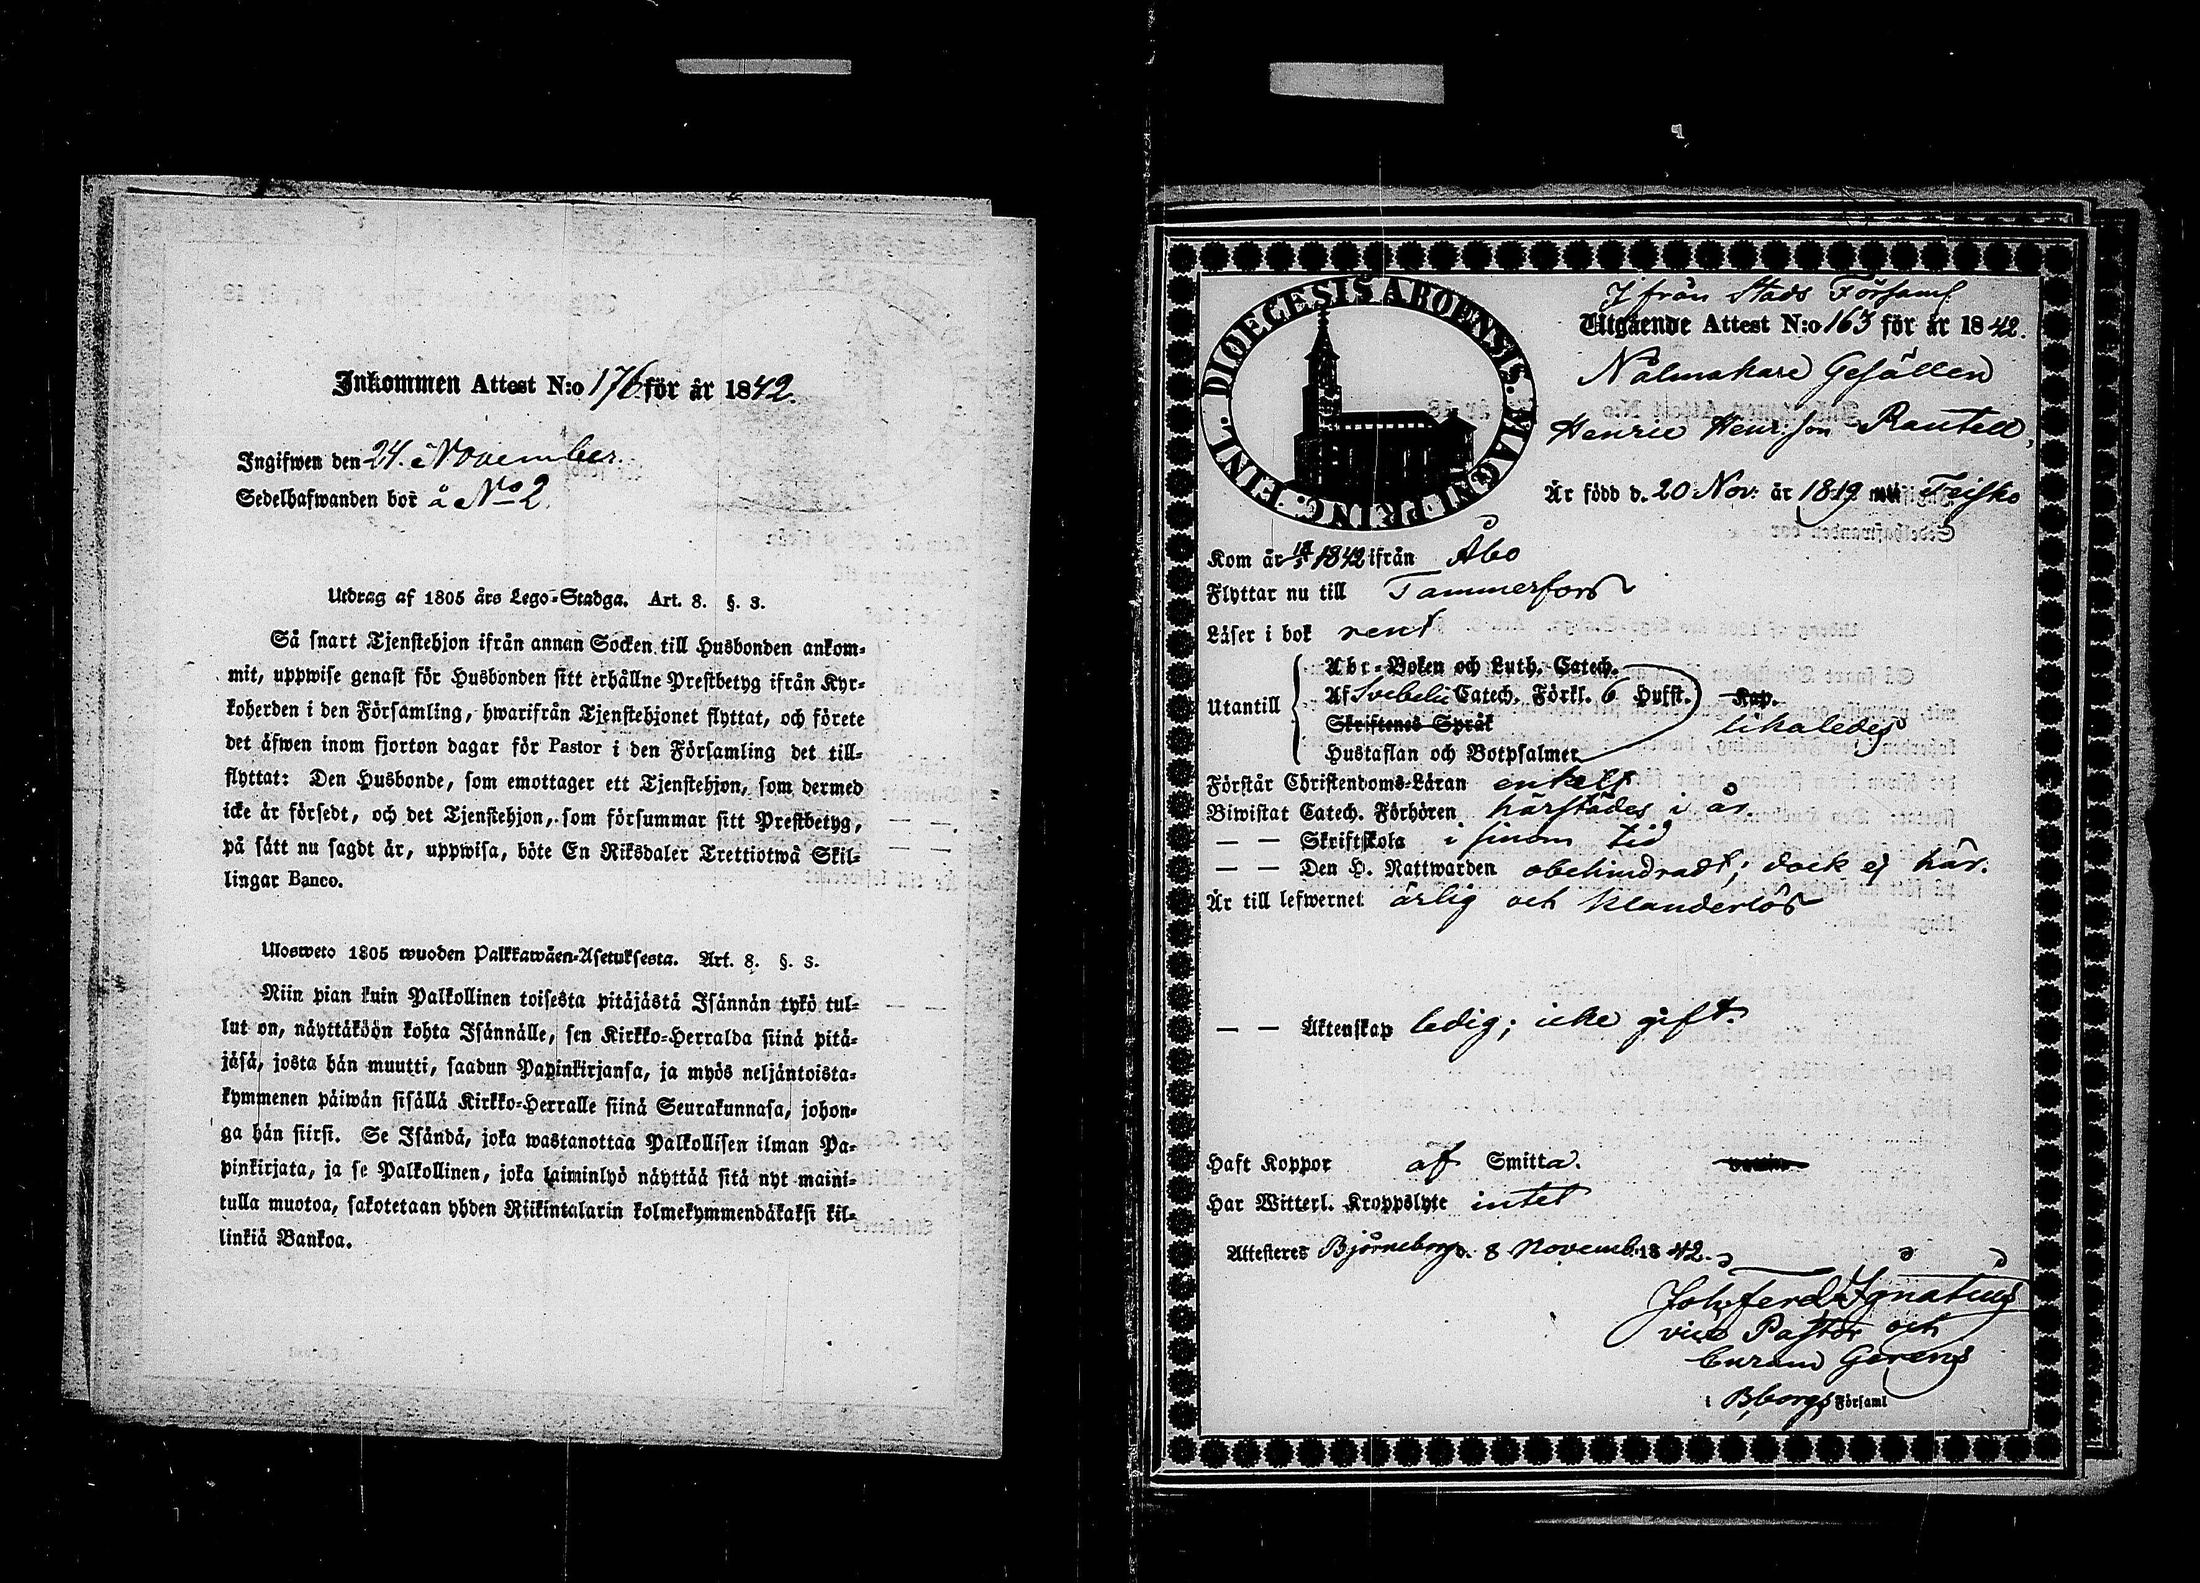 Inkommen Attest N:o 176 för år 1842.
Ingifwen den 24. November.
Sedelhafwanden bor å No 2.
Utdrag af 1805 års Lego-Stadga. Art. 8. §. 3.
Så snart Tjenstehjon ifrån annan Socken till Husbonden ankom-
mit, uppwise genast för Husbonden sitt erhållne Prestbetyg ifrån Kyr-
koherden i den Församling, hwarifrån Tjenstehjonet flyttat, och förete
det äfwen inom fjorton dagar för Pastor i den Församling det till-
flyttat: Den Husbonde, som emottager ett Tjenstehjon, som dermed
icke är försedt, och det Tjenstehjon, som försummar sitt Prestbetyg,
på sätt nu sagdt är, uppwisa, böte En Riksdaler Trettiotwå Skil-
lingar Banco.
Ulosweto 1805 wuoden Palkkawäen-Asetuksesta. Art. 8. §. 3.
Niin pian kuin Palkollinen toisesta pitäjästä Isännän tykö tul-
lut on, näyttäköön kohta Isännälle, sen Kirkko-Herralda siinä pitä-
jäsä, josta hän muutti, saadun Papinkirjansa, ja myös neljäntoista-
kymmenen päiwän sisällä Kirkko-Herralle siinä Seurakunnasa, johon-
ga hän siirsi. Se Isändä, joka wastanottaa Palkollisen ilman Pa-
pinkirjata, ja se Palkollinen, joka laiminlyö näyttää sitä nyt maini-
tulla muotoa, sakotetaan yhden Riikintalarin kolmekymmendäkaksi kil-
linkiä Bankoa.
DIOECESIS ABOENSIS. MAGNI PRINC. FINL.
Ifrån Stads Församl
Utgående Attest N:o 163 för år 1842.
Nålmakare Gesällen
Henric Henrsson Rautell,
Är född d. 20 Nov. år 1819 i Teisko
Kom år 1842 ifrån Åbo
Flyttar nu till Tammerfors
Läser i bok rent
Utantill
Abc-Boken och Luth. Catech.
Af Svebelii Catech. Förkl. 6 Hufst. Kap.
Skriftenes Språk likaledes
Hustaflan och Botpsalmer
Förstår Christendoms-Läran enkelt
Biwistat Catech. Förhören härstädes i år
— — Skriftskola i sinom tid
— — Den H. Nattwarden obehindradt; dock ej här.
Är till lefwernet ärlig och klanderlös
— — Äktenskap ledig; icke gift.
Haft Koppor af Smitta.
Har Witterl. Kroppslyte intet
Attesteres Björneborg d. 8 Novemb. 1842.
Joh. Ferd. Ignatius
vice Pastor och
Curam Gerens
i B:borgs Församl